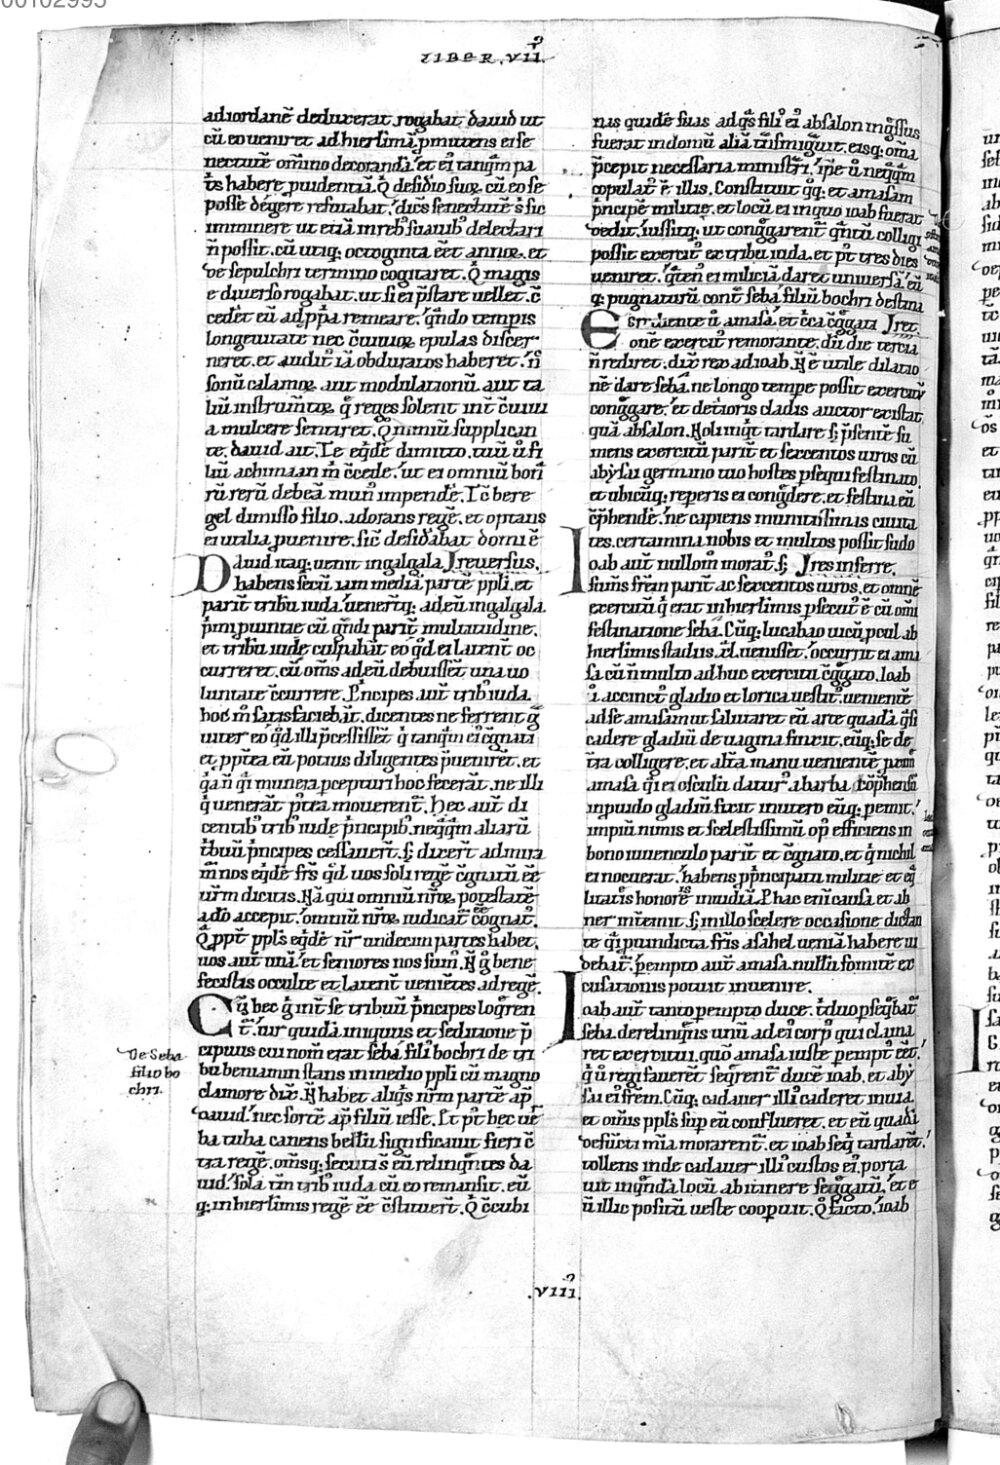 LIBER .VII.
ad iordanē deduxerat. rogabat dauid ut
cū eo ueniret ad hierłimā. p̄mittens ei se
nectutē om̄ino decorandā. et ei tanq̄m pa
t̄s habere puidentiā. Q̄ desidio suoꝝ cū eo se
posse degere refutabat. dicēs senectutē s̄ sic
imminere ut etiā in reb suauib delectari
n̄ possit. cū utiq; octoginta eēt annoꝝ. et
de sepulchri termino cogitaret. Q̄ magis
e diuerso rogabat. ut si ei p̄stare uellet. c̄
cedēt eū ad ppa remeare. q̄ndo tempis
longeuitate nec c̄uiuioꝝ epulas discer
neret. et auditū iā obduratos haberet. n̄
sonū calamoꝝ. aut modulationū. aut ta
liū instrum̄toꝝ q̄ reges solent int̄ c̄uiuii
a mulcere sentiret. Q̄ nimiū supplican
te. dauid ait. Te eq̄dē dimitto. tuū u̅ fi
liū achimaan m̄ c̄cede. ut ei omniū bon̄
rū rerū debeā mun̅ impendē. Ic̄ bere
gel dimisso filio. adorans regē. et optans
ei utilia puenire. sic̄ desid̄abat domi ē
Dauid itaq; uenit in galgala Ireuersus.
habens secū iam mediā partē ppli. et
parit̄ tribū iuda. uenerq̄; ad eū in galgala.
p̄mi puintiae cū q̄ndi parit̄ multitudine.
et tribū iude culpabāt eo q̄d ei latent̄ oc
curreret. cū om̄s ad eū debuissēt una uo
luntate c̄currere. P̄ncipes aut̄ trib iuda.
hoc m̄ satisfaciebāt. dicentes ne ferrent q̄
uiter eo q̄d illi p̄cessissēt q̄ tanq̄m ei c̄gnati
et ppt̄ea eū potius diligentes p̄ueniret. et
q̄a n̄ q̄i munera pcepturi hoc fecerāt. ne illi
q̄ uenerāt p̄tea mouerent̄. hec aut̄ di
centib trib iude p̄ncipib. neq̄q̄m aliarū
t̄buū p̄ncipes cessauert̄. s; dixert̄ admira
m̄ nos eq̄dē frs̄ q̄d uos soli regē c̄gnatū eē
ur̄m dicitis. Nā qui omniū nr̄oꝝ potestatē
a dō accepit. omniū nr̄oꝝ iudicat̄ c̄gnat.
Q̄ ppt̄ ppls̄ eq̄dē nr̄ undecim partes habet.
uos aut̄ unā. et seniores nos sum. Ñ g̊ bene
fecistis occulte et latent̄ uenietes ad regē.
Cū hec q̄ int̄ se tribuū p̄ncipes loq̄ren
t̄. uir quidā iniquus et seditione p̄
cipuus cui nom̄ erat seba fili bochri de tri
bu beniamin stans in medio ppli cū magno
clamore dix̄. Ñ habet aliq̄s nr̄m partē ap̄
dauid. nec sortē ap̄ filiū iesse. Et pt̄ hec uē
ba tuba canens bellū significauit fieri c̄
tra regē. om̄sq; secuti s̄ eū relinq̄ntes da
uid. sola tm̄ trib iuda cū eo remansit. eū
q; in hierłimis regē eē c̄stituert̄. Q̄ c̄cubi
De Seba
filio bo
chri.
nas quidē suas ad q̄s fili ei absalon ing̊ssus
fuerat in domū aliā tn̄smigūit. eisq; om̄a
p̄cepit necessaria ministri. ip̄e u̅ neq̄q̄m
copulat̄ ē illis. Constituit q̄q; et amasam
p̄ncipē militie. et locū ei in quo ioab fuerat
dedit. iussitq; ut congregaren̄t q̄ntū colligi
possit exercit ex tribu iuda. et pt̄ tres dies
ueniret. q̄ten ei miliciā daret uniuersā. eū
q; pugnaturū cont̄ sebā filiū bochri destina
Egrediente u̅ amasa. et c̄ca c̄gregata Iret.
onē exercit remorante. dū die tercia
n̄ rediret. dix̄ rex ad ioab. Ñ ē utile dilatio
nē dare sebā. ne longo tempe possit exercitū
congregare. et det̄ioris cladis auctor existat
quā absalon. Noli inq̄t tardare s; p̄sentē su
mens exercitū parit̄ et sexcentos uiros cū
abysai germano tuo hostes p̄sequi festinato.
et ubicūq; reperis ei congredere. et festina eū
c̄p̄hende. ne capiens munitissimas ciuita
tes. certamina nobis et multos possit sudo
Ioab aut̄ nullom̊ morat̄. s; Ires inferre.
sum̄s frēm parit̄ ac sexcentos uiros. et omnē
exercitū q̄ erat in hierłimis p̄secut ē cū om̄i
festinatione seba. Cūq; lucabao uicū pcul ab
hierłimis stadiis .xl. uenissēt. occurrit ei ama
sa cū n̄ multo ad huc exercitu c̄gregato. Ioab
i accinct gladio et lorica uestit. uenientē
ad se amasam ut salutaret eū arte quadā q̄si
cadere gladiū de uagina finxit. eūq; se de
tra colligere. et alt̄a manu uenientē primū
amasa q̄i ei osculū datur̅ a barba c̄p̄hensū
inpuido gladiū fixit in utero eūq; pemit.
impiū nimis et scelestissimū op̅ efficiens in
bono iuuenculo parit̄ et c̄gnato. et q̄ nichil
ei nocuerat. habens p̄ncipatū militie et eq̄
litatis honorē inuidiā. P hac eni causa et ab
ner int̄emit. s; in illo scelere occasione dictan
te q̄i p uindicta fr̄is asahel ueniā habere ui
debat̄. pempto aut̄ amasa nullū fomitē ex
cusationis potuit inuenire.
Ioab aut̄ tanto pempto duce. t̄duo pseq̄bat̄
seba. derelinq̄ns unū ad ei corp̅ qui clama
ret exercitui. quō amasa iuste pempt̄ eēt.
q̄ u̅ regi fauerēt seq̄rent̄ ducē ioab. et aby
sai ei frēm. Cūq; cadauer illi caderet in uia.
et om̄is ppls̄ sup eū conflueret. et eū quadā
defuncti mīa morarent̄. et ioab seq̄ tardarēt.
tollens inde cadauer illi custos ei. porta
uit in q̄ndā locū ab itinere segregatū. et e
ū illic positū ueste cooperuit. Q̄ facto. ioab
.VIII.